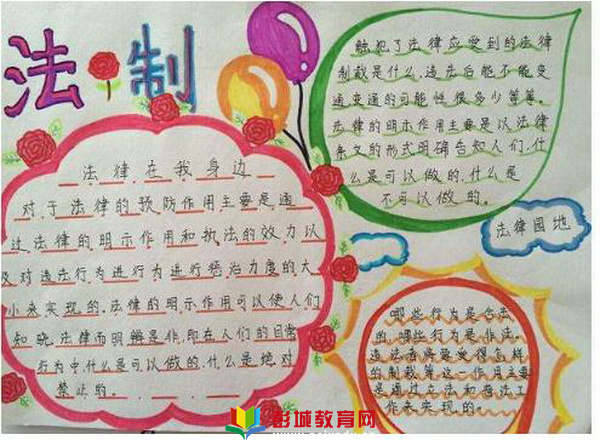 法制
法律在我身边
对于法律的预防作用主要是通
过法律的明示作用和执法的效力以
及对违法行为进行为进行惩治力度的大
小来实现的。法律的明示作用可以使人们
知晓法律而明辨是非,即在人们的日常
行为中什么是可以做的,什么是绝对
禁止的。
触犯了法律应受到的法律
制裁是什么,违法后能不能变
通变通的可能性很多少等等。
法律的明示作用主要是以法律
条文的形式明确告知人们,什
么是可以做的,什么是
不可以做的。
法律园地
哪些行为是合法
的,哪些行为是作法。
违法者将要受得怎样
的制裁等这一作用主要
是通过立法和普法工
作来实现的
彭城教育网